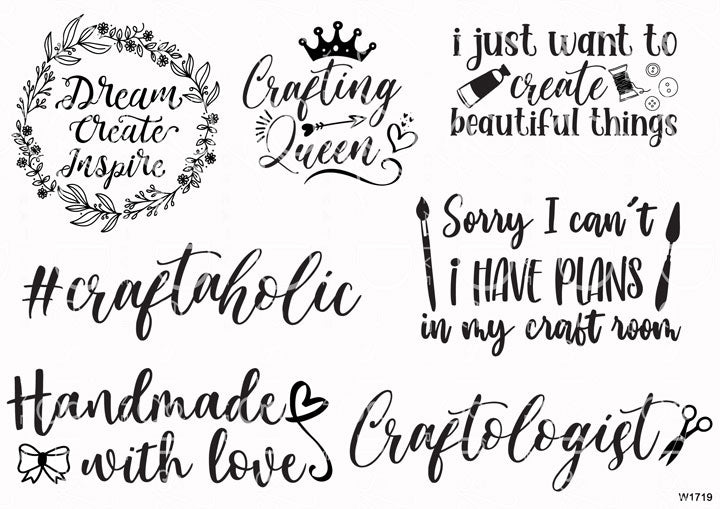 Dream
Create
Inspire
Crafting
Queen
i just want to
create
beautiful things
#craftaholic
Sorry I can't
i HAVE PLANS
in my craft room
Handmade
with love
Craftologist
W1719